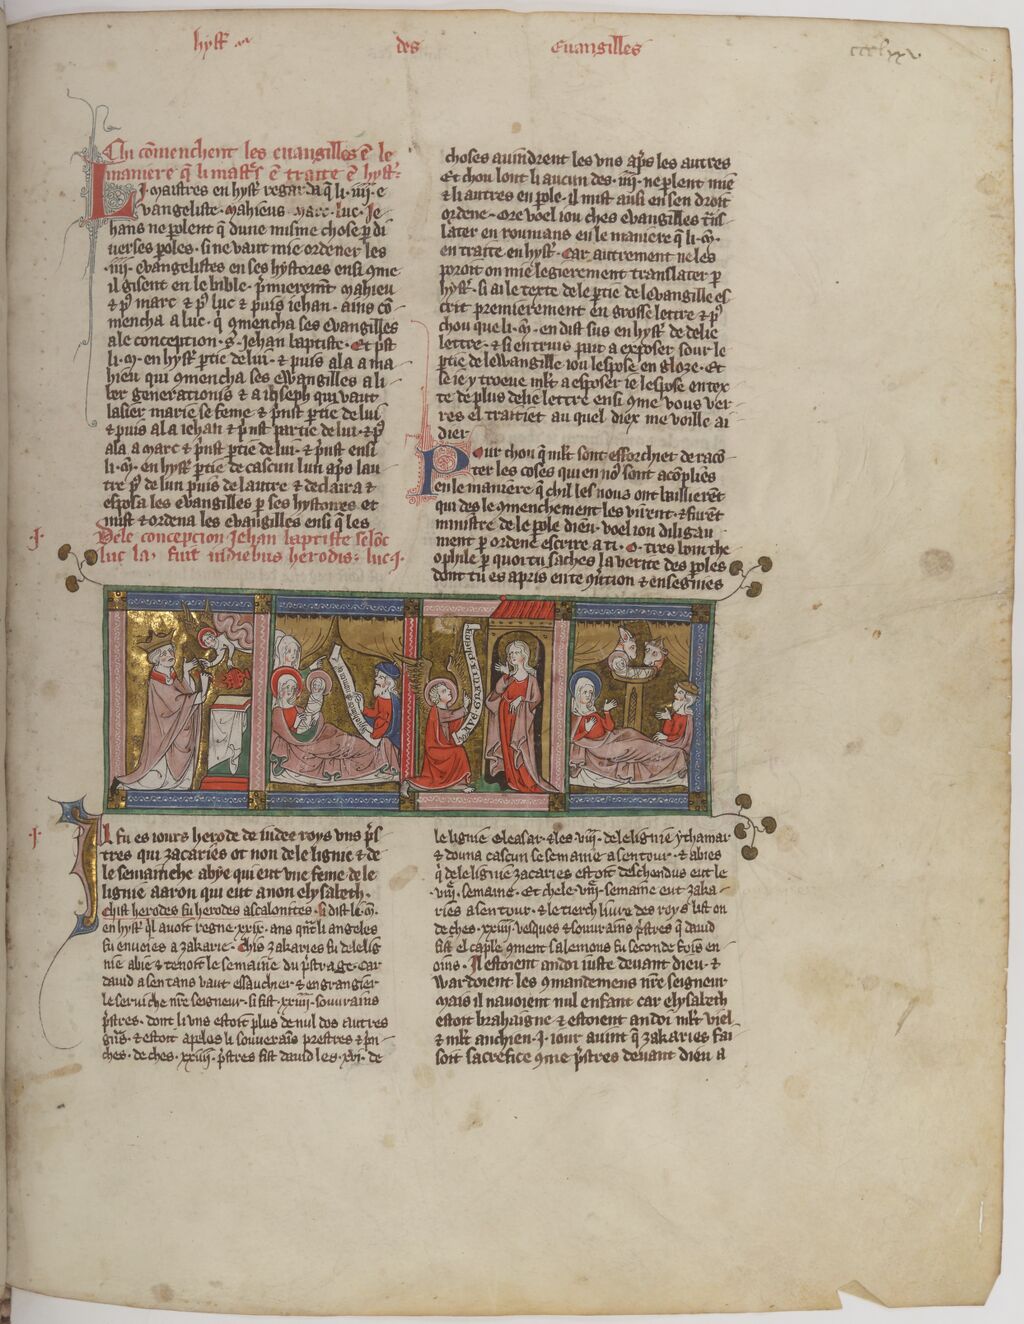 hystꝰ des Euangilles ccclxxv.
Chi cōmenchent les euangilles ē le
maniere q̄ li mastrs ē traite ē hystꝰ
LI maistres en hystꝰ regarda q̄ li .iiij. e
vangeliste . Mahieus Marc . luc . Je
hans ne polent q̄ dune misme chose p di
uerses poles . si ne vaut mie ordener les
.iiij. evangelistes en ses hystores ensi 9me
il gisent en le bible . p̄mieremt̄ mahieu
⁊ pꝰ marc ⁊ pꝰ luc ⁊ puis iehan . ains cō
mencha a luc . q̄ 9mencha ses evangilles
a le conception . s . Jehan baptiste . Et pꝰst
li . m̄ . en hystꝰ ptie de lui . ⁊ puis ala a ma
hieu qui 9mencha ses ewangilles a li
ber generationis ⁊ a ioseph qui vaut
lasier marie se feme ⁊ pꝰnst ptie de lui
⁊ puis ala a iehan ⁊ pꝰnst partie de lui . ⁊ pꝰ
ala a marc ⁊ pꝰnst ptie de lui . ⁊ pꝰnst ensi
li . m̄ . en hystꝰ ptie de cascun lun apꝰs lau
tre pꝰ de lun puis de lautre ⁊ declaira ⁊
esposa les evangilles p ses hystores et
mist ⁊ ordena les evangilles ensi q̄ les
.J. Dele concepcion Jehan baptiste seloc
luc la . fuit in diebus herodis . luc .j.
choses auindrent les vns apꝰs les autres
Et chou lont li aucun des .iiij. ne plent mie
⁊ li autres en pole . il mist ausi en sen droit
ordene . Ore voel iou ches evangilles trās
later en roumans en le maniere q̄ li . m̄ .
en traite en hystꝰ . Car autrement ne les
poroit on mie legierement translater p
hystꝰ . si ai le texte de le ptie de levangille es
crit premierement en grosse lettre ⁊ pꝰ
chou que li . m̄ . en dist sus en hystꝰ de delie
lettre . ⁊ si en truis part a exposer sour le
ptie de lewangille iou lespose en gloze . Et
se ie y troeue mlt a esposer ie lespose en tex
te de plus delie lettre ensi 9me vous ver
res el traitiet au quel diex me voille ai
dier
POur chou q̄ mlt sont efforchiet de racō
ter les coses qui en noꝰ sont acōplies
en le maniere q̄ chil les nous ont baillierēt
qui des le 9menchement les virent . ⁊ furēt
ministre de le pole dieu . voel iou diligau
ment p ordene escrire a ti . O . tres boin the
ophile p quoi tu saches la verite des poles
dont tu es apris en te 9ition ⁊ ensegnies
AVE GRATIA PLENA
.J. IL fu es iours herode de iudee roys vns pꝰs
tres qui zacaries ot non de le lignie ⁊ de
le semainche abye qui eut vne feme de le
lignie aaron qui eut a non elysabeth .
Chist herodes fu herodes ascalonites . si dist li . m̄ .
en hystꝰ ql̄ auoit regne .xxix. ans qn̄t li angeles
fu envoies a zakarie . Chis zakaries fu de le lig
nie abie ⁊ tenoit le semaine du pꝰstrage . Car
dauid a sen tans vaut essauchier ⁊ engrangier
le seruiche nr̄e seigneur . si fist .xxiiij. souurains
pꝰstres . dont li vns estoit plus de nul des autres
⁊ estoit apeles li souverains prestres ⁊ pꝰn
ches . de ches .xxiiij. pꝰstres fist dauid les .xvj. de
le lignie Eleasar . ⁊ les .viij. de le lignie ythamar
⁊ douna cascun se semaine a sen tour . ⁊ abies
q̄ de le lignie zacaries estoit deschendus eut le
.viij. semaine . Et chele .viij. semaine eut zaka
ries a sen tour . ⁊ le tierch liure des roys list on
de ches .xxiiij. vesques ⁊ souurains pꝰstres q̄ dauid
fist el caple 9ment salemons fu seconde fois en
oins . Il estoient andoi iuste deuant dieu . ⁊
wardoient les 9mandemens nr̄e seigneur
mais il nauoient nul enfant car elysabeth
estoit brahaigne ⁊ estoient andoi mlt viel
⁊ mlt anchien . J . iour auint q̄ zakaries fai
soit sacrefice 9me pꝰstres deuant dieu a